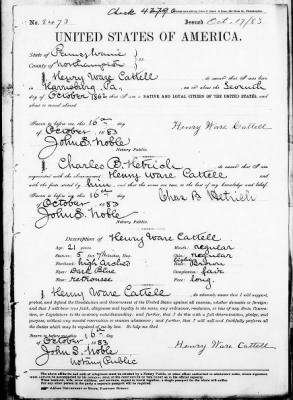 Check 42796
No. 8473 Issued Oct. 17/83
UNITED STATES OF AMERICA.
State of Pennsylvania
County of Northampton
I Henry Ware Cattell do swear that I was born
in Harrisburg, Pa. on or about the Seventh
day of October 1862 that I am a NATIVE AND LOYAL CITIZEN OF THE UNITED STATES, and
about to travel abroad
Sworn to before me, this 16th
day of October 1883
Henry Ware Cattell
John S. Noble
Notary Public.
I Charles B. Hetrich do swear that I am
acquainted with the above named Henry Ware Cattell and
with the facts stated by him and that the same are true, to the best of my knowledge and belief.
Sworn to before me, this 16th
day of October 1883
Chas B Hetrich
John S. Noble
Notary Public.
Description of Henry Ware Cattell
Age: 21 years Mouth: regular
Stature: 5 feet 7 inches, Eng. Chin: regular
Forehead: high arched Hair: brown
Eyes: Dark Blue Complexion: fair
Nose: retroussé Face: long.
I Henry Ware Cattell do solemnly swear that I will support,
protect, and defend the Constitution and Government of the United States against all enemies, whether domestic or foreign;
and that I will bear true faith, allegiance and loyalty to the same, any ordinance, resolution, or law of any State, Convention,
or Legislature to the contrary notwithstanding; and further, that I do this with a full determination, pledge, and
purpose, without any mental reservation or evasion whatsoever; and further, that I will well and faithfully perform all
the duties which may be required of me by law. So help me God.
Sworn to before me, this 16th
day of October 1883
Henry Ware Cattell
John S. Noble
Notary Public